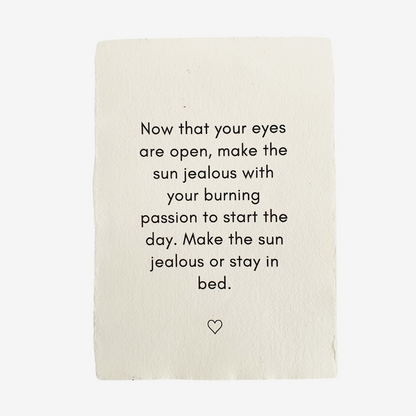 Now that your eyes
are open, make the
sun jealous with
your burning
passion to start the
day. Make the sun
jealous or stay in
bed.